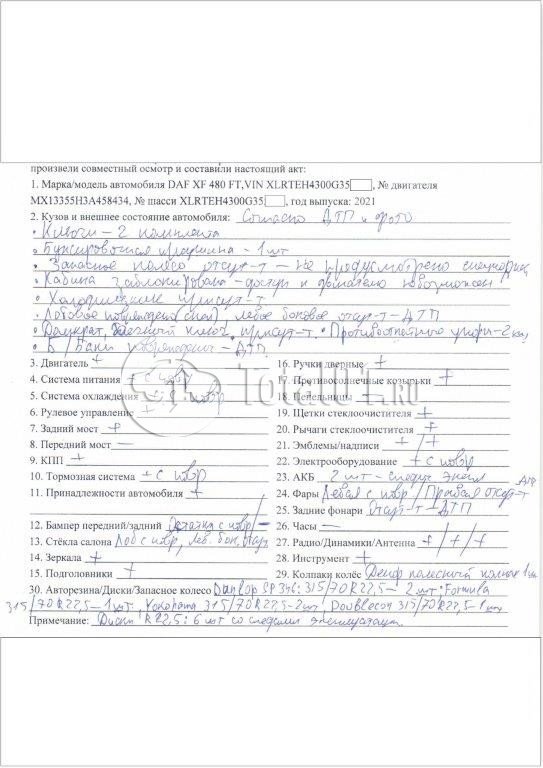 произвели совместный осмотр и составили настоящий акт:
1. Марка/модель автомобиля DAF XF 480 FT,VIN XLRTEH4300G35, № двигателя
MX13355H3A458434, № шасси XLRTEH4300G35, год выпуска: 2021
2. Кузов и внешнее состояние автомобиля: Согласно ДТП и фото
• Ключи – 2 комплекта
• Буксировочная проушина – 1 шт
• Запасное колесо отсут-т – не предусмотрено
• Кабина заблокирована – доступ к двигателю невозможен
• Холодильник присут-т
• Лобовое повреждено, левое боковое отсут-т – ДТП
• Домкрат, ключ присут-т. • Противооткатные упоры – 2
• Б/Баки повреждены – ДТП
3. Двигатель +
4. Система питания + с повр
5. Система охлаждения – с повр
6. Рулевое управление +
7. Задний мост –
8. Передний мост –
9. КПП +
10. Тормозная система + с повр
11. Принадлежности автомобиля +
12. Бампер передний/задний Остатки с повр/–
13. Стёкла салона Лоб с повр, лев. бок. отсут
14. Зеркала +
15. Подголовники +
16. Ручки дверные +
17. Противосолнечные козырьки +
18. Пепельницы –
19. Щетки стеклоочистителя +
20. Рычаги стеклоочистителя +
21. Эмблемы/надписи +/+
22. Электрооборудование + с повр
23. АКБ 2 шт – следы экспл
24. Фары Левая с повр/Правая отсут-т ДТП
25. Задние фонари Отсут-т – ДТП
26. Часы –
27. Радио/Динамики/Антенна +/+/+
28. Инструмент +
29. Колпаки колёс
30. Авторезина/Диски/Запасное колесо Dunlop SP346: 315/70R22,5 – 2 шт. Formula
315/70R22,5 – 1 шт, Yokohama 315/70R22,5 – 2 шт, Doublecoin 315/70R22,5 – 1 шт
Примечание: Диски R22,5: 6 шт со следами эксплуатации.
Total01.ru